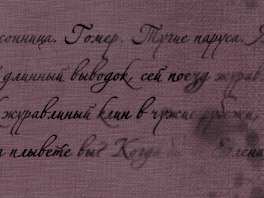 сонница. Гомер. Тугие паруса. Я
длинный выводок, сей поезд журав
журавлиный клин в чужие
плывете вы? Когда